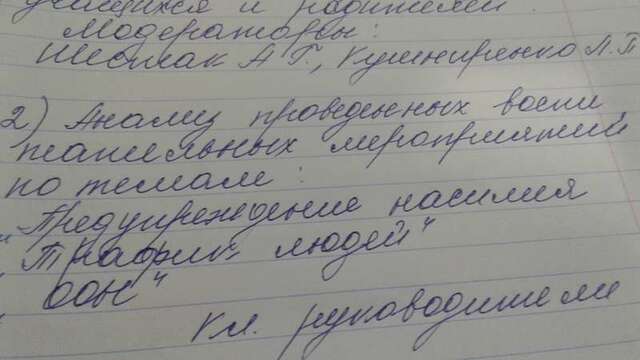 учащихся и родителей.
Модераторы:
Шестак А Г., Кушниренко Л.П
2) Анализ проведенных воспи
тательных мероприятий
по темам:
"Предупреждение насилия
"Трафик людей"
"ООН"
Кл. руководители